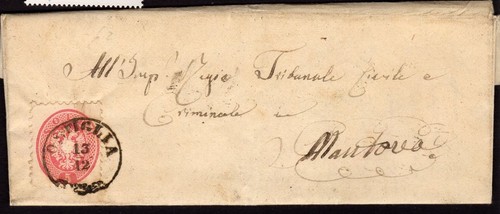 All' Imp. Regio Tribunale Civile e
Criminale di
Mantova
OSTIGLIA
13
12